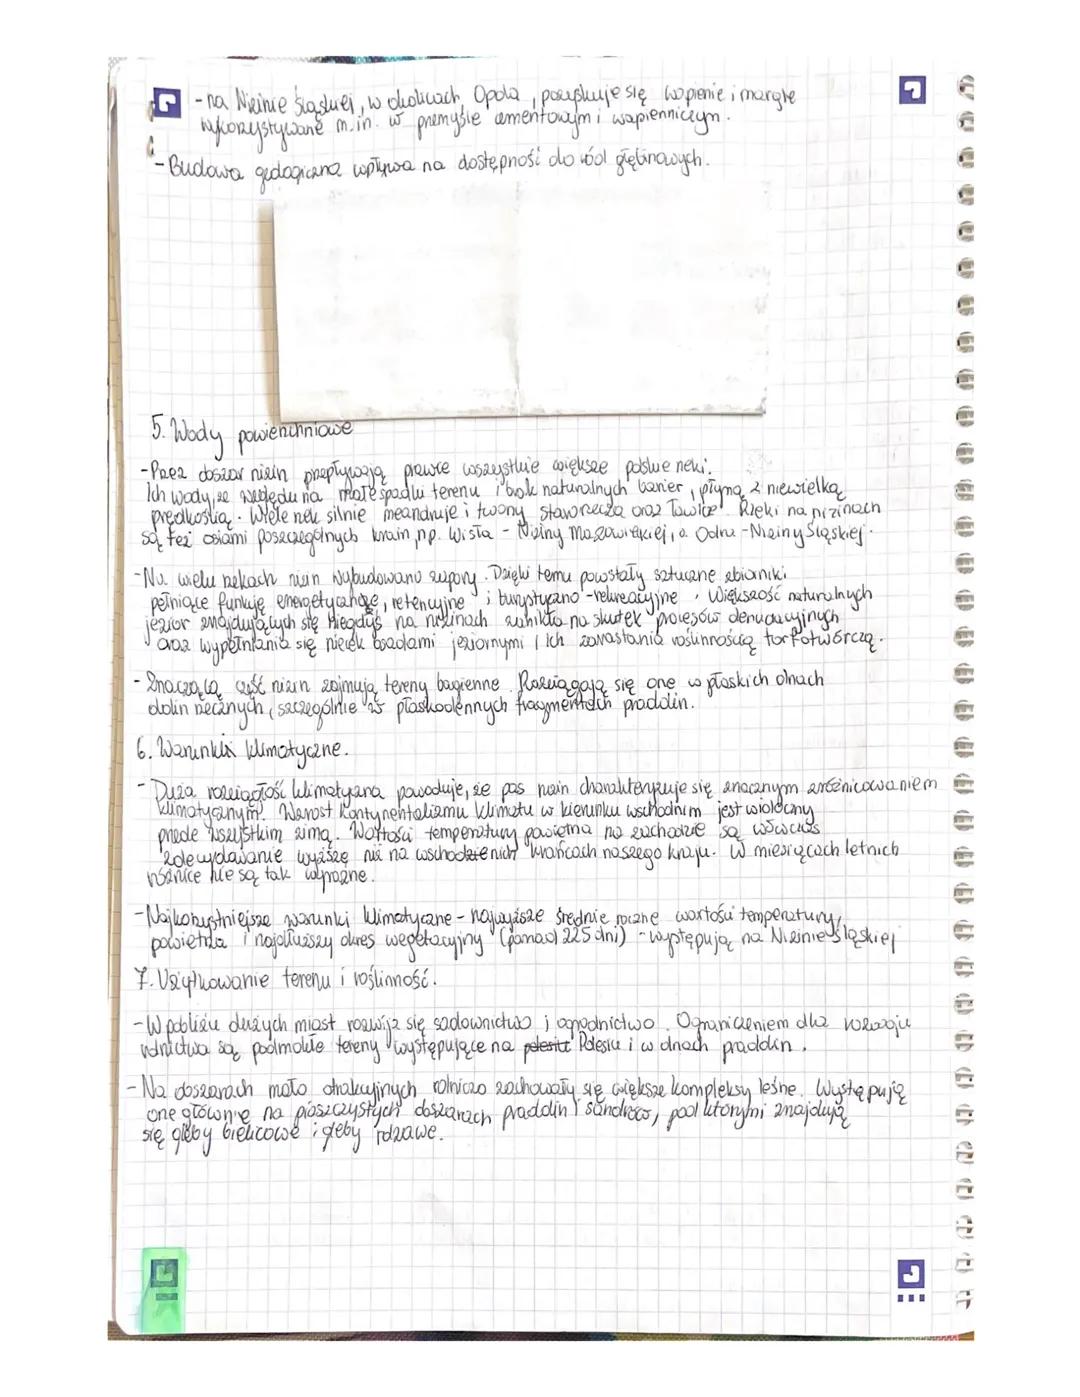 - na Nizinie Śląskiej, w okolicach Opola, pozyskuje się wapienie i margle
wykorzystywane m.in. w przemyśle cementowym i wapienniczym.
- Budowa geologiczna wpływa na dostępność do wód głębinowych.
5. Wody powierzchniowe
- Przez obszar nizin przepływają prawie wszystkie większe polskie rzeki.
Ich wody, ze względu na małe spadki terenu i brak naturalnych barier, płyną z niewielką
prędkością. Wiele rzek silnie meandruje i tworzy starorzecza oraz łowice. Rzeki na nizinach
są też osiami poszczególnych krain, np. Wisła - Niziny Mazowieckiej, a Odra - Niziny Śląskiej.
- Na wielu rzekach nizin wybudowano zapory. Dzięki temu powstały sztuczne zbiorniki
pełniące funkcję energetyczne, retencyjne i turystyczno-rekreacyjne. Większość naturalnych
jezior znajdujących się niegdyś na nizinach zanikła na skutek procesów denudacyjnych
oraz wypełniania się niecek osadami jeziornymi i ich zarastania roślinnością torfotwórczą.
- Znaczącą część nizin zajmują tereny bagienne. Rozciągają się one w płaskich dnach
dolin rzecznych, szczególnie w płaskodennych fragmentach pradolin.
6. Warunki klimatyczne.
- Duża rozciągłość klimatyczna powoduje, że pas nizin charakteryzuje się znacznym zróżnicowaniem
klimatycznym. Wzrost kontynentalizmu klimatu w kierunku wschodnim jest widoczny
przede wszystkim zimą. Wartości temperatury powietrza na zachodzie są wówczas
zdecydowanie wyższe niż na wschodzienich krańcach naszego kraju. W miesiącach letnich
różnice nie są tak wyraźne.
- Najkorzystniejsze warunki klimatyczne - najwyższe średnie roczne wartości temperatury
powietrza i najdłuższy okres wegetacyjny (ponad 225 dni) - występują na Nizinie Śląskiej
7. Użytkowanie terenu i roślinność.
- W pobliżu dużych miast rozwija się sadownictwo i ogrodnictwo. Ograniczeniem dla rozwoju
rolnictwa są podmokłe tereny występujące na Polesiu i w dnach pradolin.
- Na obszarach mało atrakcyjnych rolniczo zachowały się większe kompleksy leśne. Występują
one głównie na piaszczystych obszarach pradolin i sandrów, pod którymi znajdują
się gleby bielicowe i gleby rdzawe.